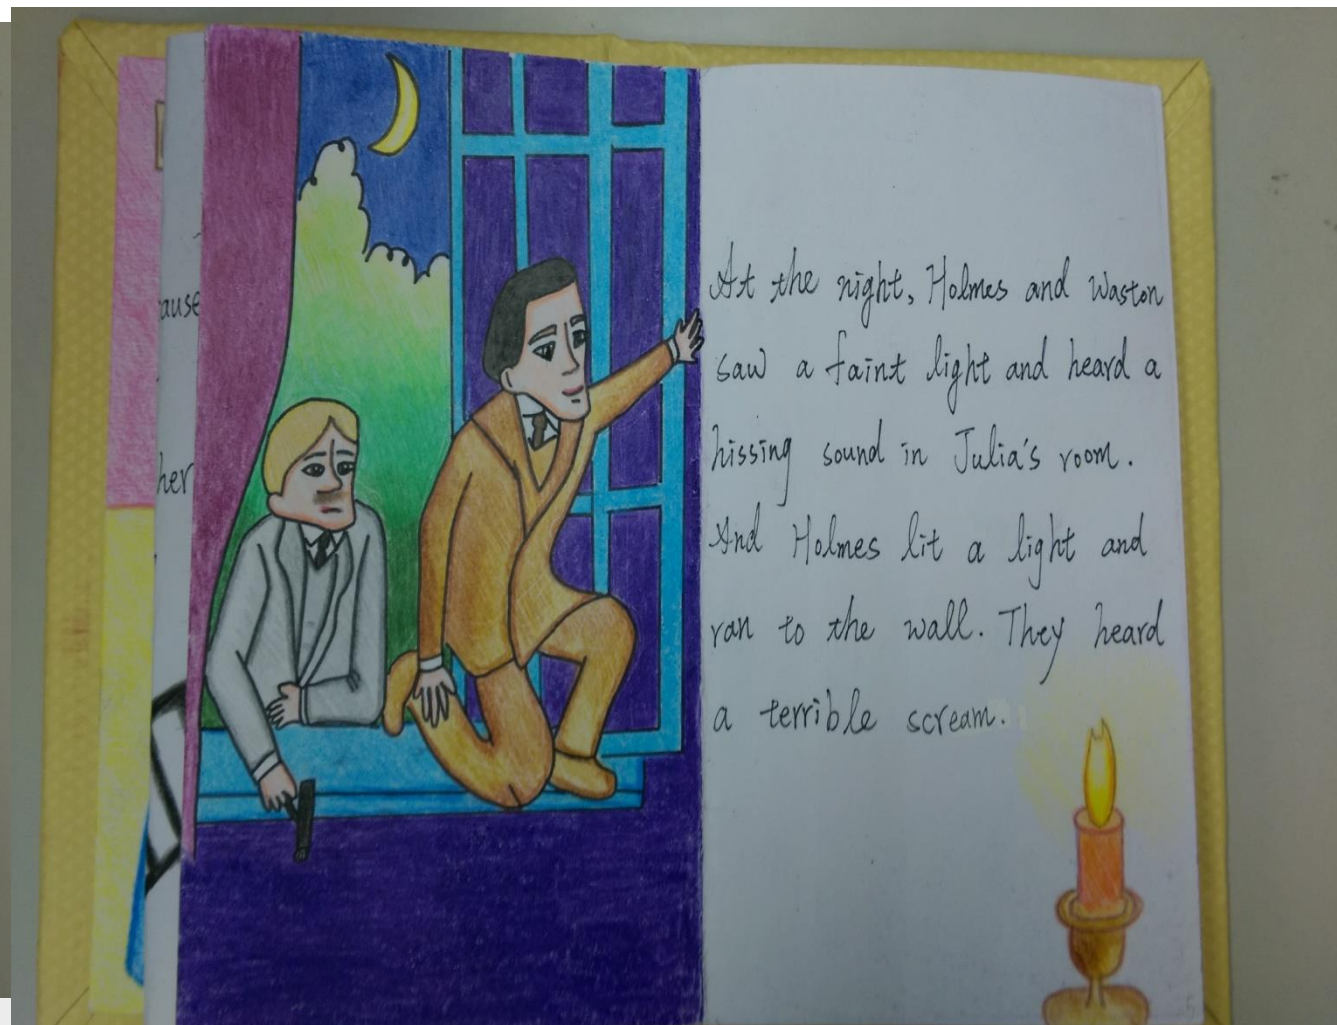 ause
her
At the night, Holmes and Waston
saw a faint light and heard a
hissing sound in Julia's room.
And Holmes lit a light and
ran to the wall. They heard
a terrible scream.
5